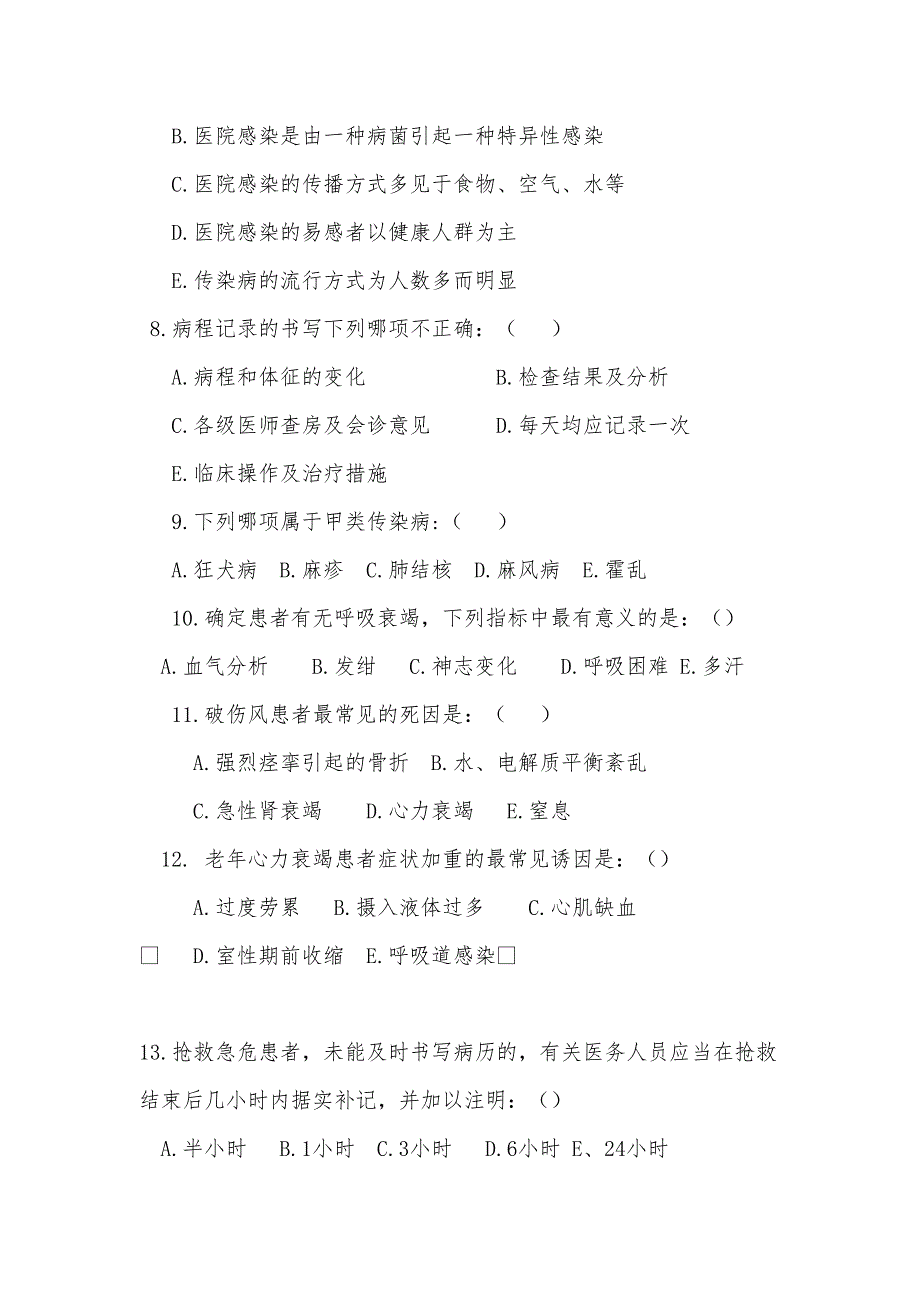 B.医院感染是由一种病菌引起一种特异性感染
C.医院感染的传播方式多见于食物、空气、水等
D.医院感染的易感者以健康人群为主
E.传染病的流行方式为人数多而明显
8.病程记录的书写下列哪项不正确：（   ）
A.病程和体征的变化            B.检查结果及分析
C.各级医师查房及会诊意见      D.每天均应记录一次
E.临床操作及治疗措施
9.下列哪项属于甲类传染病:（   ）
A.狂犬病  B.麻疹  C.肺结核  D.麻风病  E.霍乱
10.确定患者有无呼吸衰竭，下列指标中最有意义的是：（）
A.血气分析    B.发绀   C.神志变化    D.呼吸困难 E.多汗
11.破伤风患者最常见的死因是：（   ）
A.强烈痉挛引起的骨折  B.水、电解质平衡紊乱
C.急性肾衰竭    D.心力衰竭   E.窒息
12. 老年心力衰竭患者症状加重的最常见诱因是：（）
A.过度劳累   B.摄入液体过多    C.心肌缺血
□   D.室性期前收缩  E.呼吸道感染□
13.抢救急危患者，未能及时书写病历的，有关医务人员应当在抢救
结束后几小时内据实补记，并加以注明：（）
A.半小时   B.1小时  C.3小时   D.6小时 E、24小时